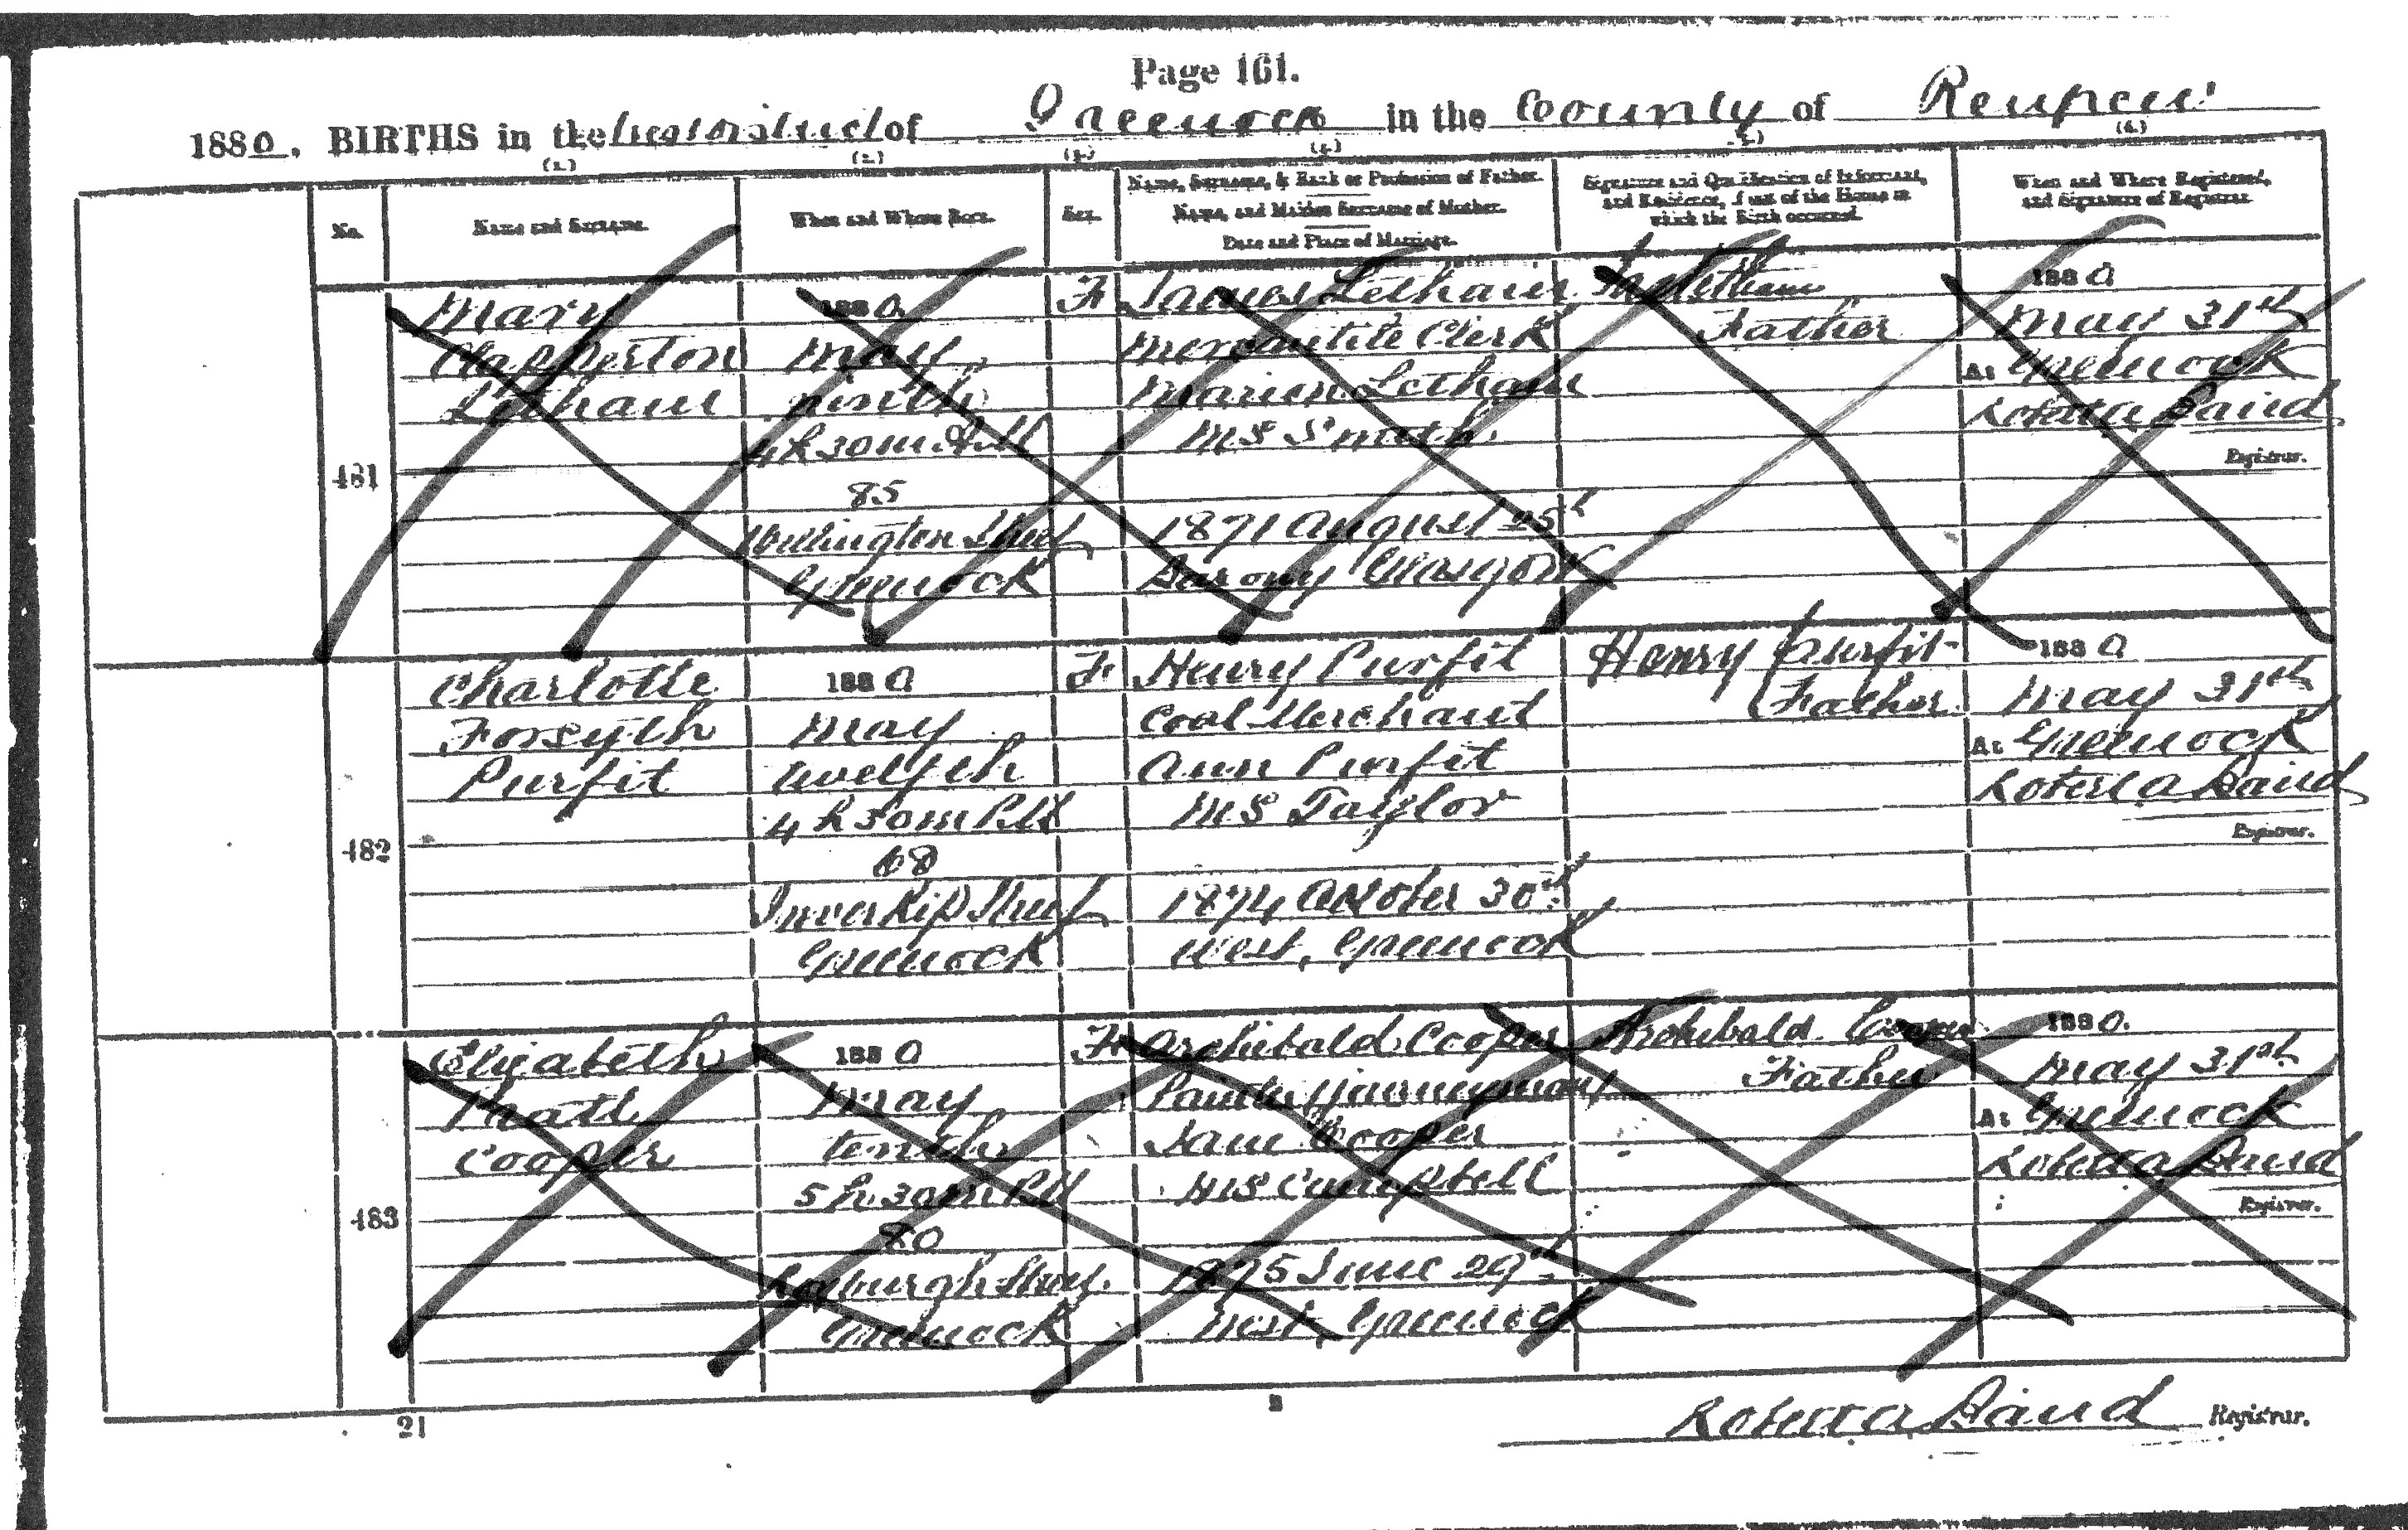 Page 161.
1880. BIRTHS in the West District of Greenock in the County of Renfrew
(1.) (2.) (3.) (4.) (5.) (6.)
No.
Name and Surname.
When and Where Born.
Sex.
Name, Surname, & Rank or Profession of Father.
Name, and Maiden Surname of Mother.
Date and Place of Marriage.
Signature and Qualification of Informant,
and Residence, if out of the House in
which the Birth occurred.
When and Where Registered,
and Signature of Registrar.
481
Mary
Clapperton
Letham
1880
May
ninth
4h 30m A.M
85
Wellington Street
Greenock
F
James Letham
Mercantile Clerk
Marion Letham
M S Smith
1871 August 25th
Barony Glasgow
Letham
Father
1880
May 31st
At Greenock
Baird
Registrar.
482
Charlotte
Forsyth
Purfit
1880
May
twelfth
4h 30m P.M
68
Inverkip Street
Greenock
F
Henry Purfit
Coal Merchant
Ann Purfit
M S Taylor
1874 October 30th
West, Greenock
Henry Purfit
Father
1880
May 31st
At Greenock
Baird
Registrar.
483
Elizabeth
Pratt
Cooper
1880
May
tenth
5h 30m P.M
80
Roxburgh Street
Greenock
F
Archibald Cooper
Painter Journeyman
Jane Cooper
M S Campbell
1875 June 29th
West, Greenock
Archibald Cooper
Father
1880.
May 31st
At Greenock
Baird
Registrar.
21
Baird Registrar.